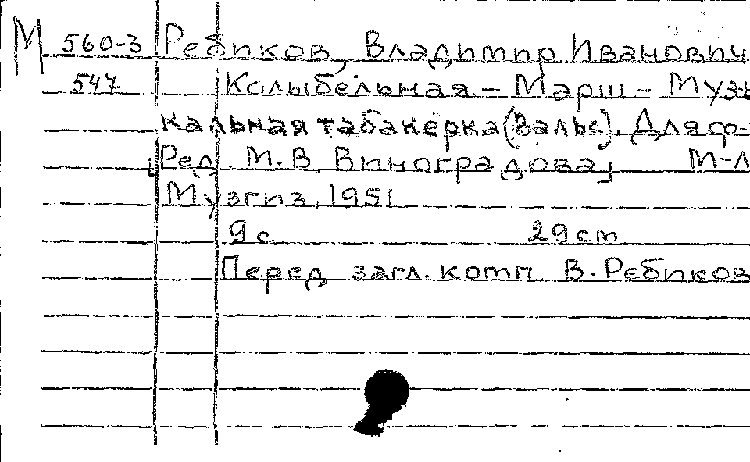 М 560-3 Ребиков, Владимир Иванович
547 Колыбельная - Марш - Музы-
кальная табакерка (Вальс). Для ф-
[Ред. М. В. Виноградова] М-Л
Музгиз, 1951
9 с. 29 cm
Перед загл. комп. В. Ребиков